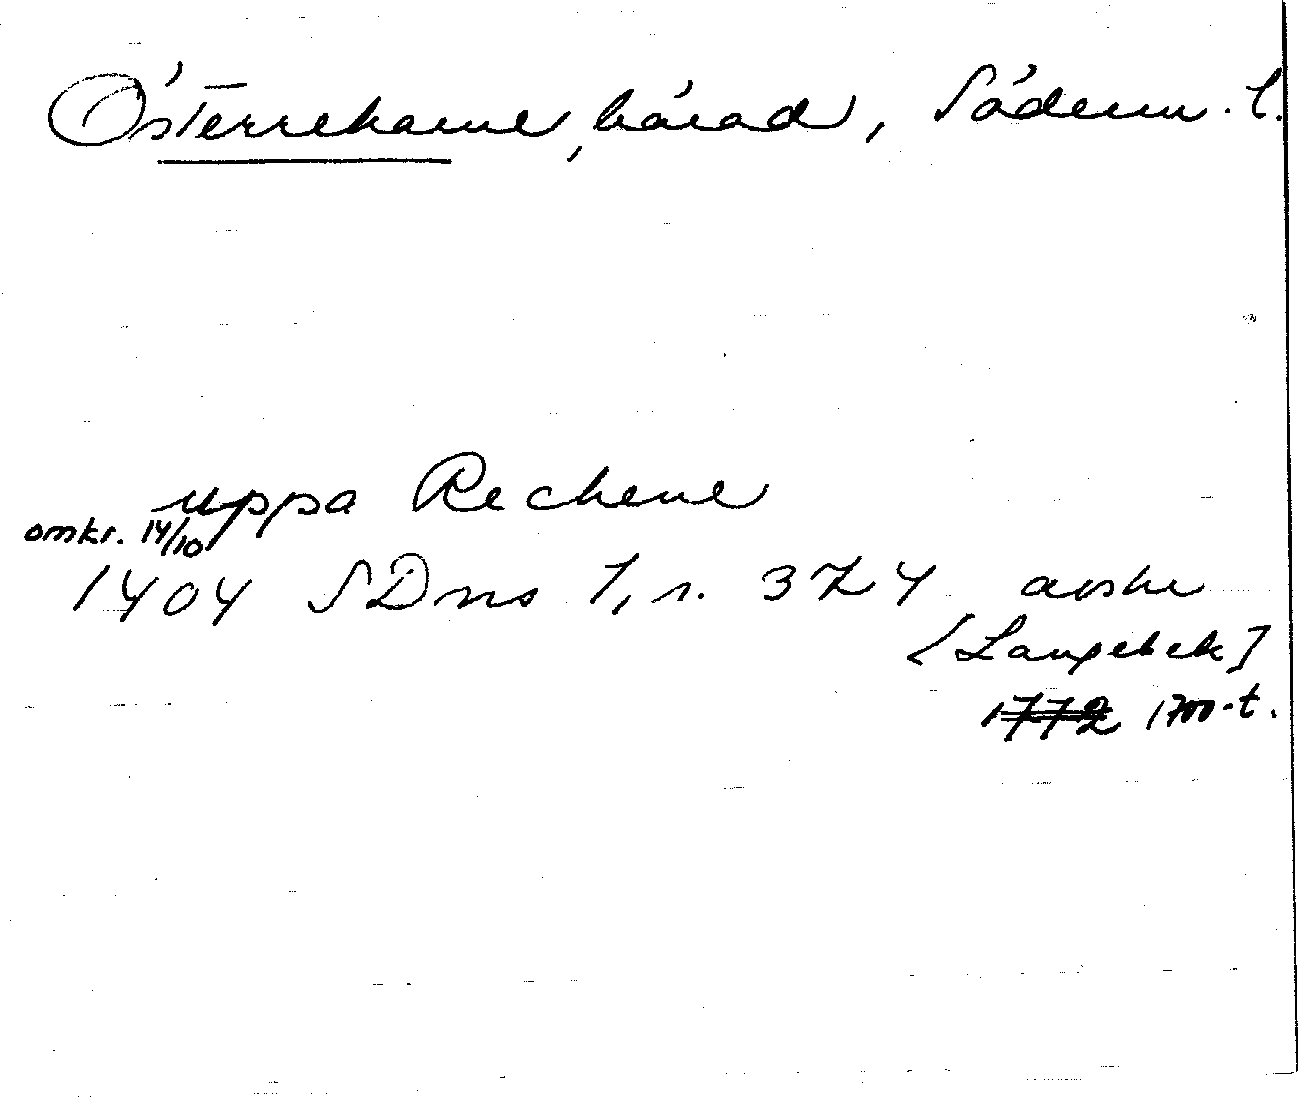 Österrekarne, härad, Söderm. l.
uppa Rechene
omkr. 14/10
1404 SDns 1, s. 324 avskr
[Langebek]
1772 1700-t.